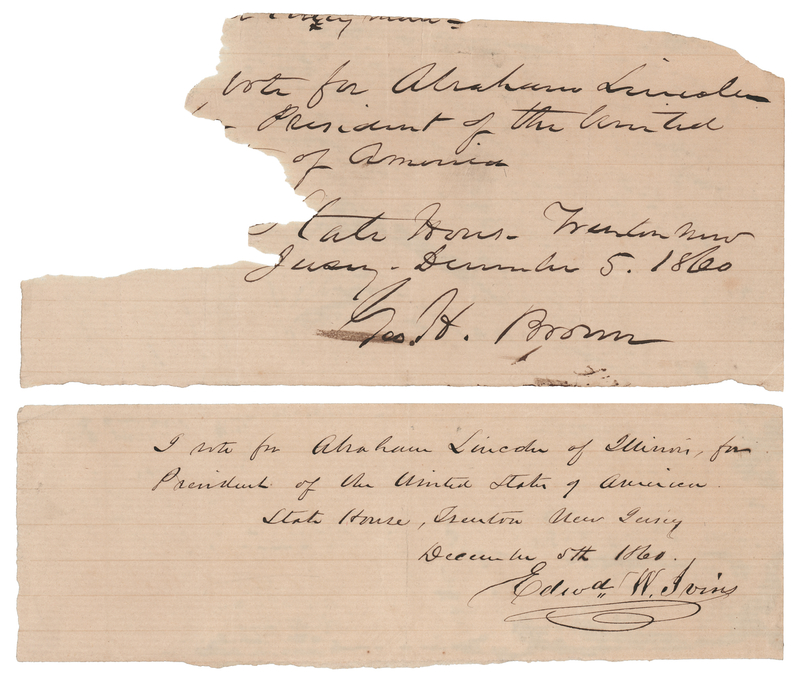 vote for Abraham Lincoln
President of the United
of America
State House Trenton New
Jersey. December 5. 1860
Geo. H. Brown
I vote for Abraham Lincoln of Illinois, for
President of the United States of America.
State House, Trenton New Jersey
December 5th 1860.
Edwd W. Ivins